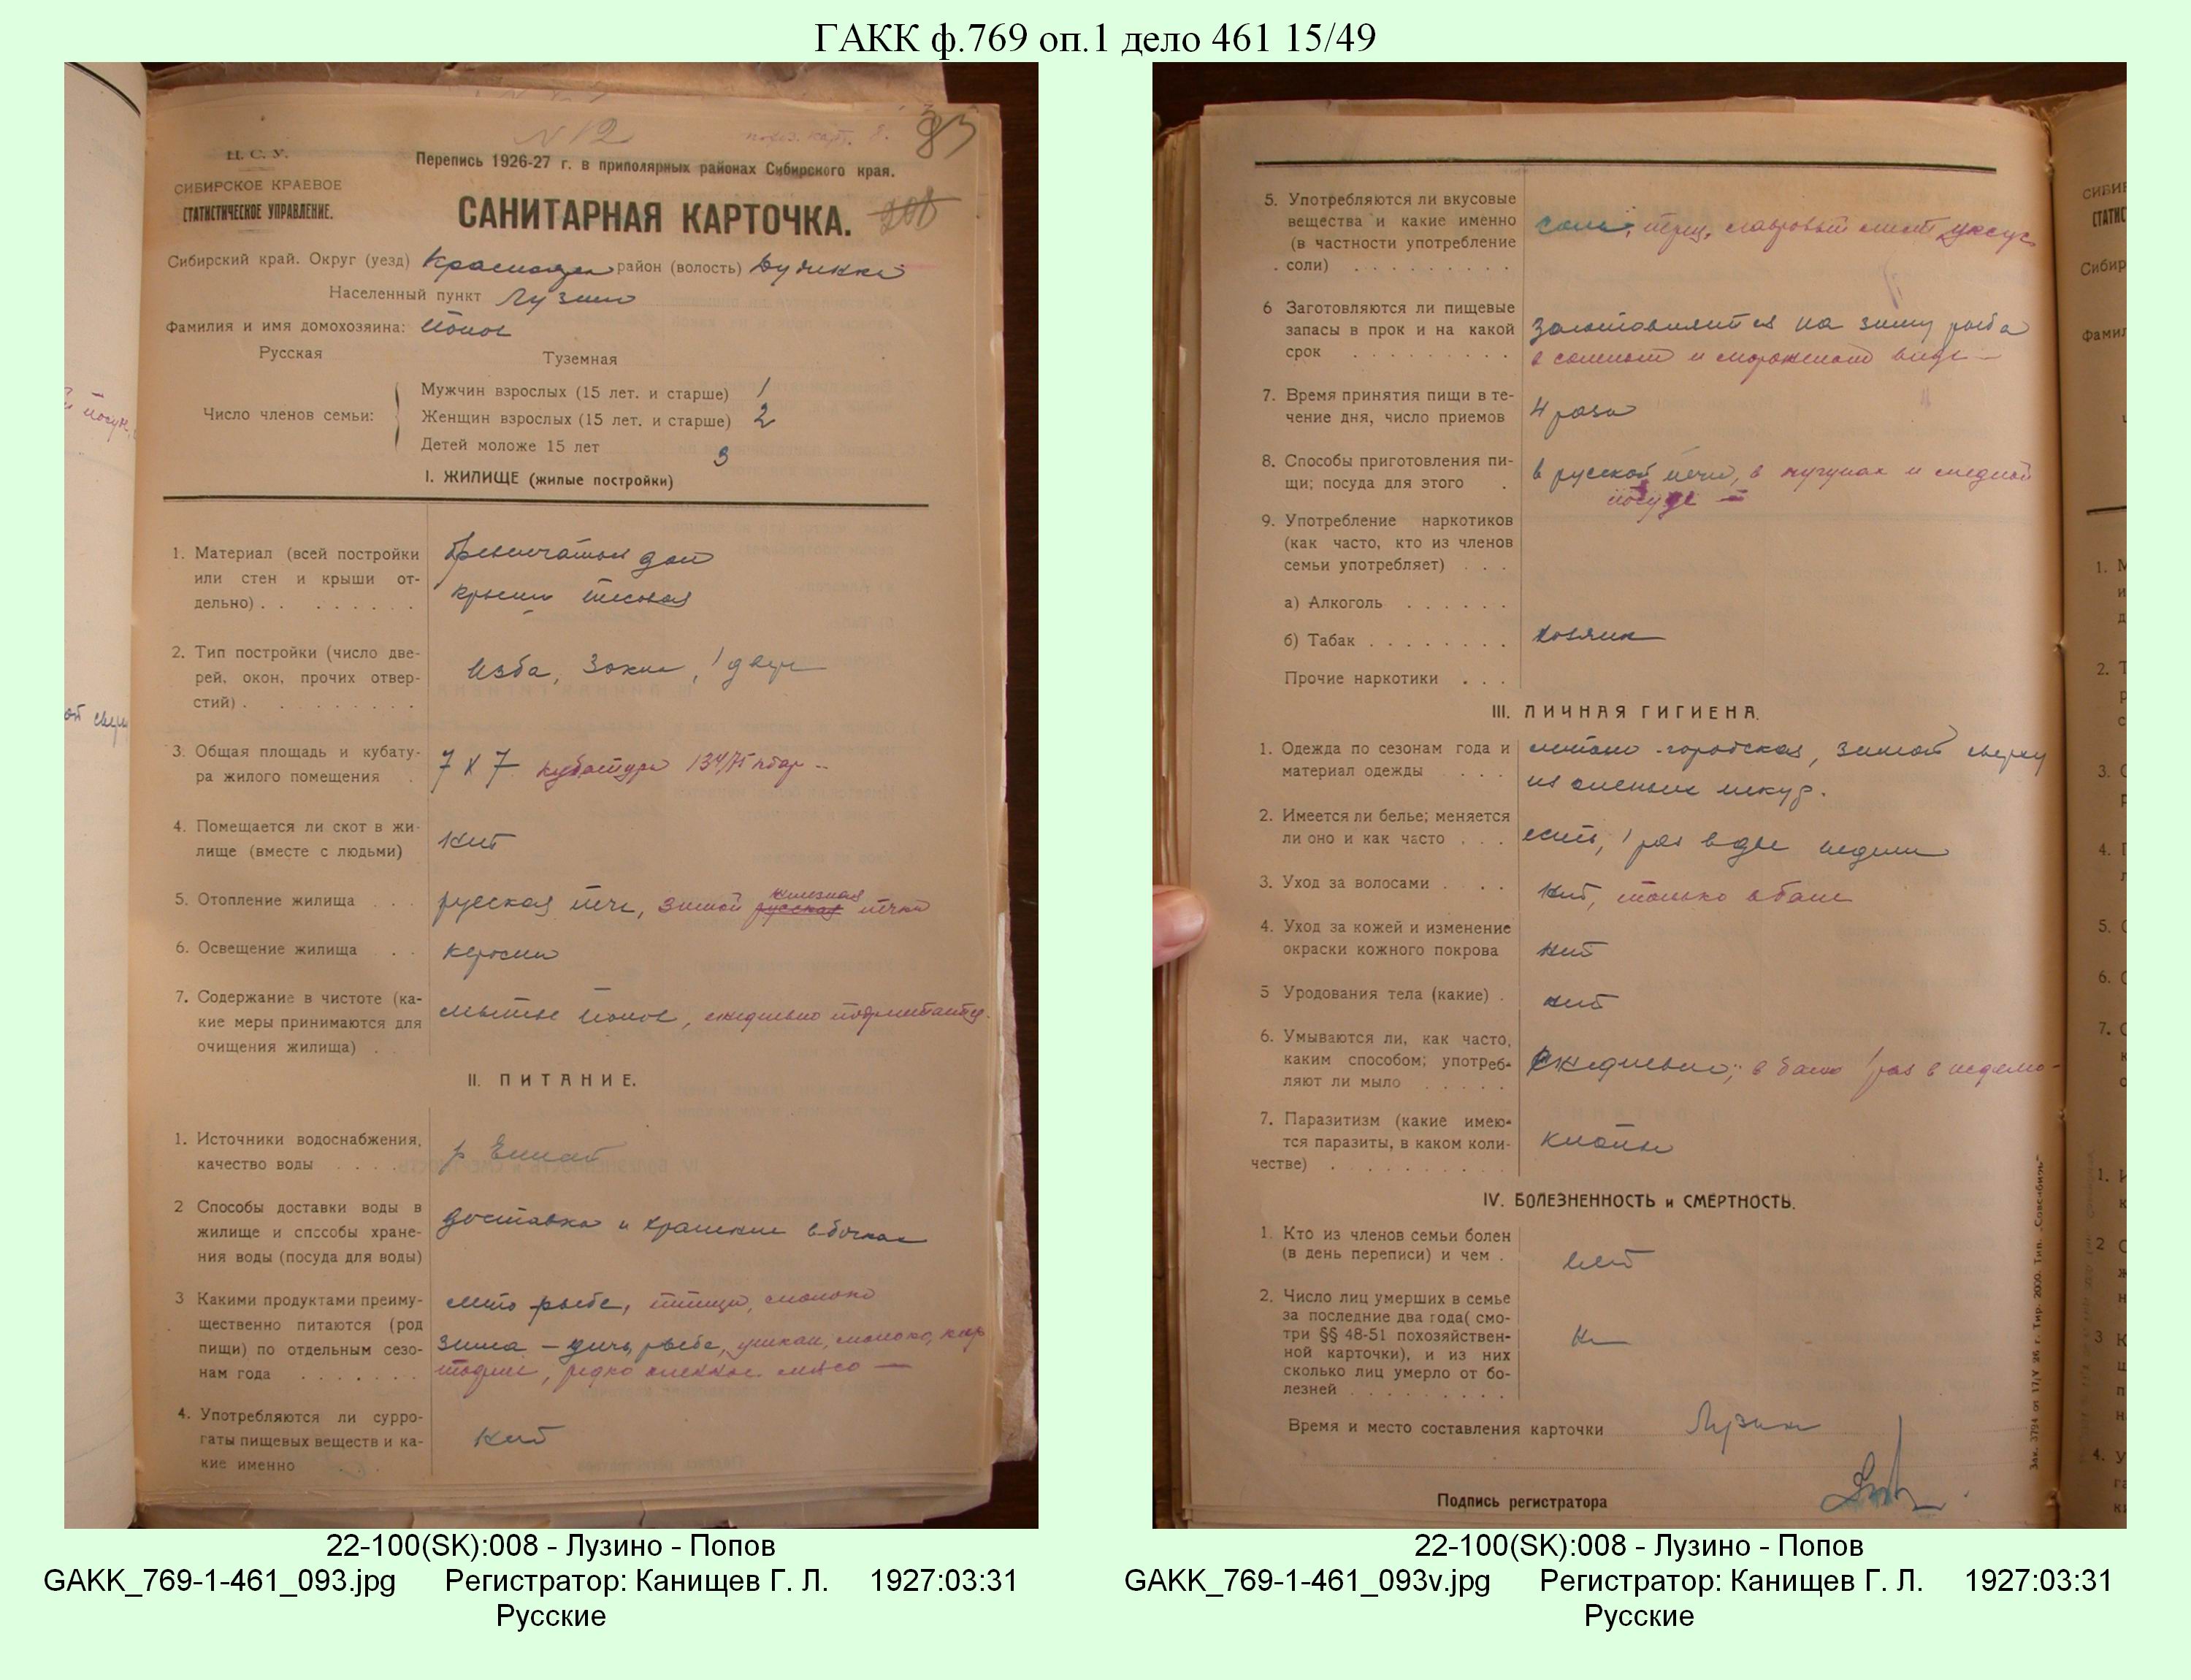 ГАКК ф.769 оп.1 дело 461 15/49
N 12
93
Ц. С. У.
СИБИРСКОЕ КРАЕВОЕ
СТАТИСТИЧЕСКОЕ УПРАВЛЕНИЕ.
Перепись 1926-27 г. в приполярных районах Сибирского края.
САНИТАРНАЯ КАРТОЧКА.
Сибирский край. Округ (уезд) район (волость)
Населенный пункт Лузино
Фамилия и имя домохозяина: Попов
Русская Туземная
Число членов семьи:
Мужчин взрослых (15 лет. и старше) 1
Женщин взрослых (15 лет. и старше) 2
Детей моложе 15 лет 3
I. ЖИЛИЩЕ (жилые постройки)
1. Материал (всей постройки бревенчатый дом
или стен и крыши от- крыша тесовая
дельно) . . . . . . . .
2. Тип постройки (число две- Изба, 3 окна, 1 двер
рей, окон, прочих отвер-
стий) . . . . . . . . .
3. Общая площадь и кубату- 7 х 7 кубатура
ра жилого помещения .
4. Помещается ли скот в жи- нет
лище (вместе с людьми)
5. Отопление жилища . . . русская печь, зимой русская железная печка
6. Освещение жилища . . керосин
7. Содержание в чистоте (ка- мытье полов, ежедневно подметается
кие меры принимаются для
очищения жилища) . .
II. ПИТАНИЕ.
1. Источники водоснабжения, р Енисей
качество воды . . . .
2 Способы доставки воды в доставка и хранение в бочках
жилище и способы хране-
ния воды (посуда для воды)
3 Какими продуктами преиму- лето рыба, птица, молоко
щественно питаются (род
пищи) по отдельным сезо- зима - дичь, рыба, молоко, кар
нам года . . . . . . . тофель, редко оленье мясо —
4. Употребляются ли сурро- нет
гаты пищевых веществ и ка-
кие именно . .
5. Употребляются ли вкусовые соль, перец, лавровый лист, уксус
вещества и какие именно
(в частности употребление
соли) . . . . . . . . .
6 Заготовляются ли пищевые заготовляется на зиму рыба
запасы в прок и на какой
срок . . . . . . . . . в соленом и мороженом виде —
7. Время принятия пищи в те- 4 раза
чение дня, число приемов
8. Способы приготовления пи- в русской печи, в чугунах и медной
щи; посуда для этого . посуде —
9. Употребление наркотиков
(как часто, кто из членов
семьи употребляет) . . .
а) Алкоголь . . . . . .
б) Табак . . . . . . . . хозяин
Прочие наркотики . . .
III. ЛИЧНАЯ ГИГИЕНА.
1. Одежда по сезонам года и летом - городская, зимой сверху
материал одежды . . . . из оленьих шкур.
2. Имеется ли белье; меняется есть, 1 раз в две недели
ли оно и как часто . . .
3. Уход за волосами . . . . нет, только в бане
4. Уход за кожей и изменение
окраски кожного покрова нет
5 Уродования тела (какие) . нет
6. Умываются ли, как часто,
каким способом; употреб- ежедневно; в баню 1 раз в неделю -
ляют ли мыло . . . . .
7. Паразитизм (какие имею-
тся паразиты, в каком коли- клопы
честве) . . . . . . . . .
IV. БОЛЕЗНЕННОСТЬ и СМЕРТНОСТЬ.
1. Кто из членов семьи болен
(в день переписи) и чем . нет
2. Число лиц умерших в семье
за последние два года( смо-
три §§ 48-51 похозяйствен-
ной карточки), и из них
сколько лиц умерло от бо-
лезней . . . . . . . . .
Время и место составления карточки Лузино
Подпись регистратора
Зак. 3794 от 17/V 26 г. Тир. 2000. Тип. „Совсибирь“
22-100(SK):008 - Лузино - Попов
GAKK_769-1-461_093.jpg Регистратор: Канищев Г. Л. 1927:03:31
Русские
22-100(SK):008 - Лузино - Попов
GAKK_769-1-461_093v.jpg Регистратор: Канищев Г. Л. 1927:03:31
Русские